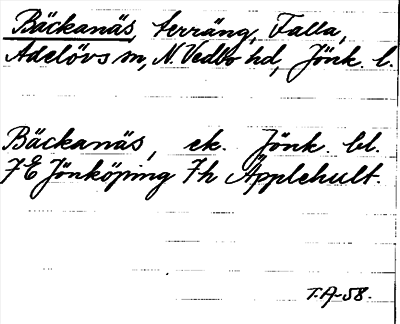 Bäckanäs, terräng, Falla,
Adelövs sn, N. Vedbo hd, Jönk. l.
Bäckanäs, ek. Jönk. bl.
7E Jönköping 7h Äpplehult.
T.A-58.